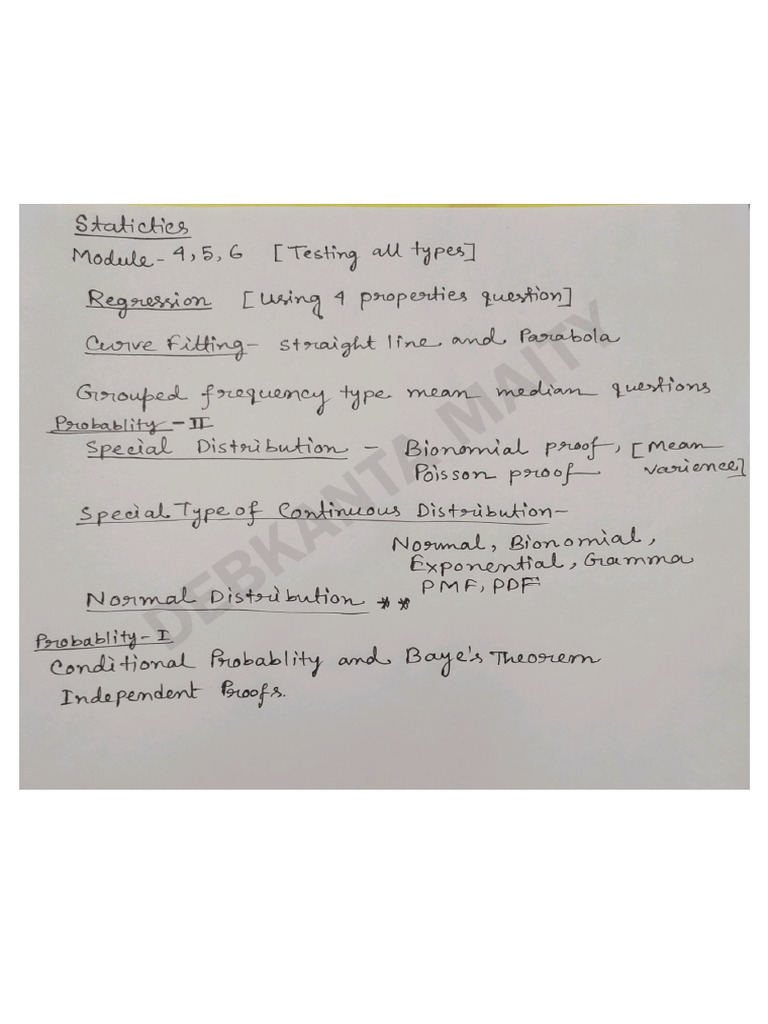 Statictics
Module - 4, 5, 6 [Testing all types]
Regression [Using 4 properties question]
Curve Fitting - Straight line and Parabola
Grouped frequency type mean median questions
Probablity - II
Special Distribution - Bionomial proof, [Mean
Poisson proof varience]
Special Type of Continuous Distribution -
Normal, Bionomial,
Exponential, Gramma
PMF, PDF
Normal Distribution **
Probablity - I
Conditional Probablity and Baye's Theorem
Independent Proofs.
DEBKANTA MAITY